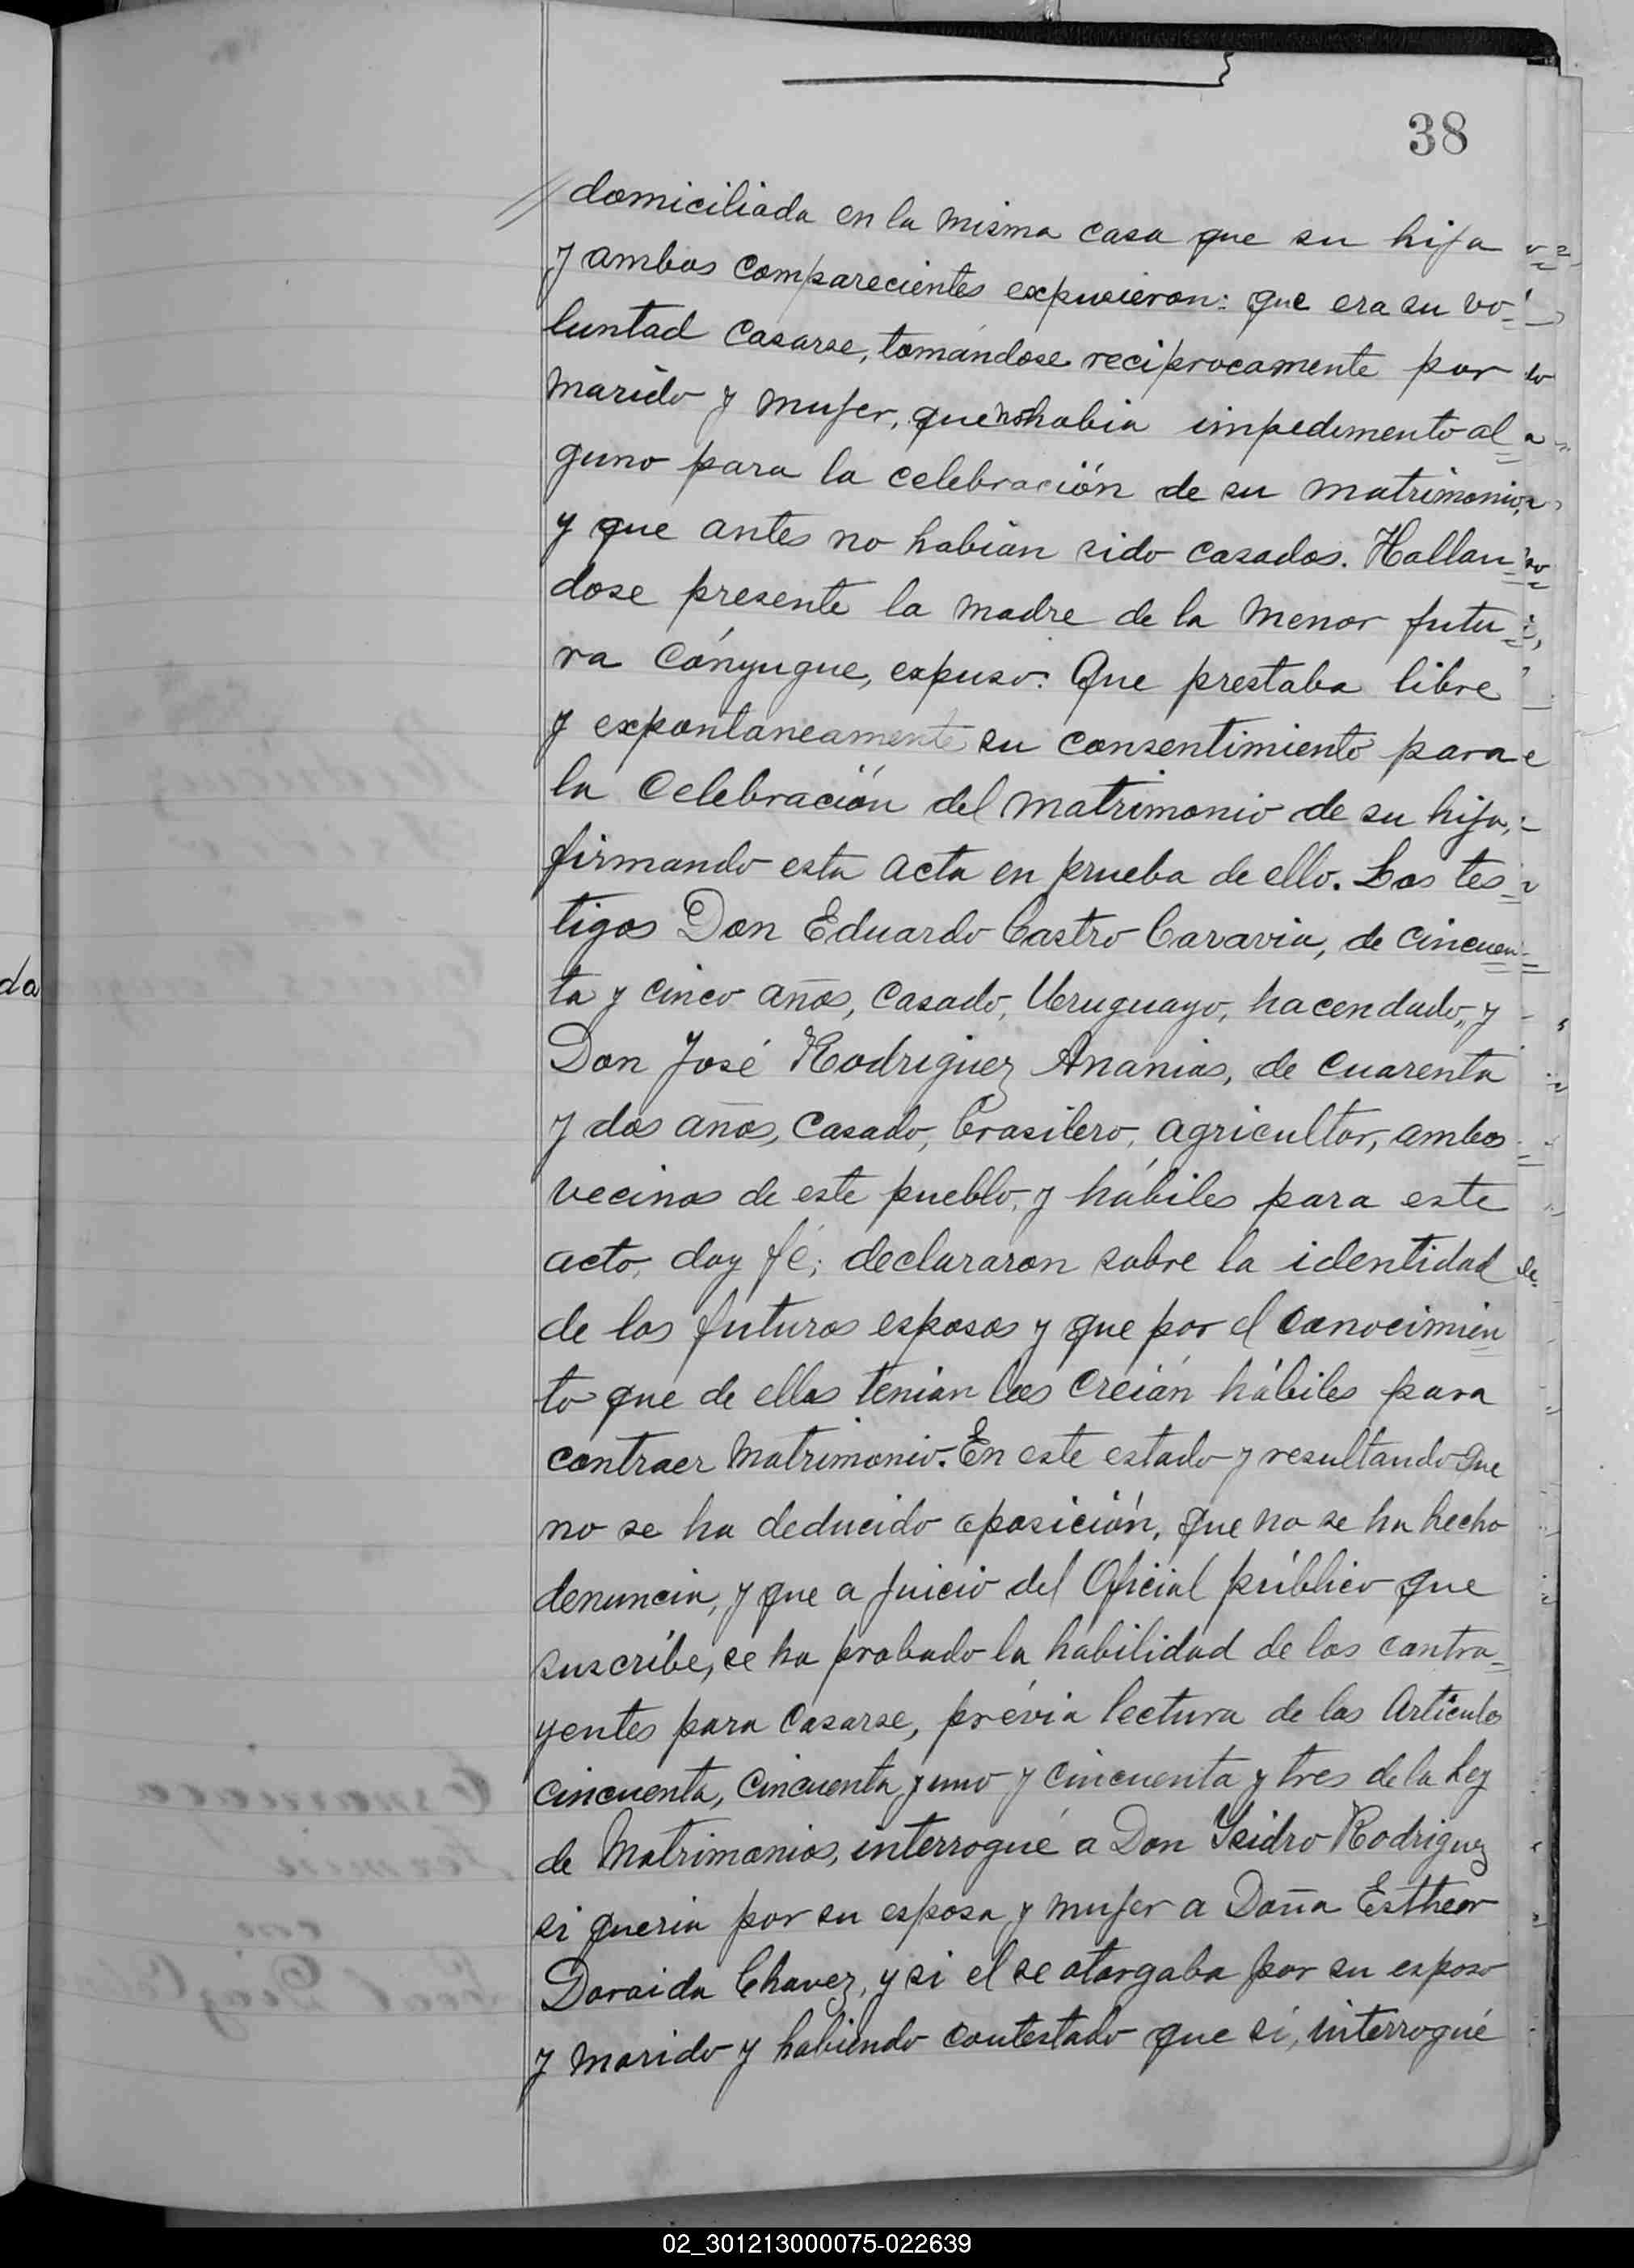 38
// domiciliada en la misma casa que su hija
y ambos comparecientes expusieron: que era su vo=
luntad casarse, tomándose reciprocamente por
marido y mujer, que no habia impedimento al=
guno para la celebración de su matrimonio,
y que antes no habian sido casados. Hallan=
dose presente la madre de la menor futu=
ra cónyugue, expuso: Que prestaba libre
y expontaneamente su consentimiento para
la celebración del matrimonio de su hija,
firmando esta acta en prueba de ello. Los tes=
tigos Don Eduardo Castro Caravia, de cincuen=
ta y cinco años, casado, Uruguayo, hacendado, y
Don José Rodriguez Ananias, de cuarenta
y dos años, casado, brasilero, agricultor, ambos
vecinos de este pueblo, y hábiles para este
acto, doy fé; declararon sobre la identidad
de los futuros esposos y que por el conocimien=
to que de ellos tenian los creián hábiles para
contraer matrimonio. En este estado y resultando que
no se ha deducido oposición, que no se ha hecho
denuncia, y que a juicio del Oficial público que
suscribe, se ha probado la habilidad de los contra=
yentes para casarse, prévia lectura de los Articulos
cincuenta, cincuenta y uno y cincuenta y tres de la Ley
de Matrimonios, interrogué a Don Ysidro Rodriguez
si queria por su esposa y mujer a Doña Esthear
Doraida Chavez, y si el se otorgaba por su esposo
y marido y habiendo contestado que sí, interrogué
da
02_301213000075-022639